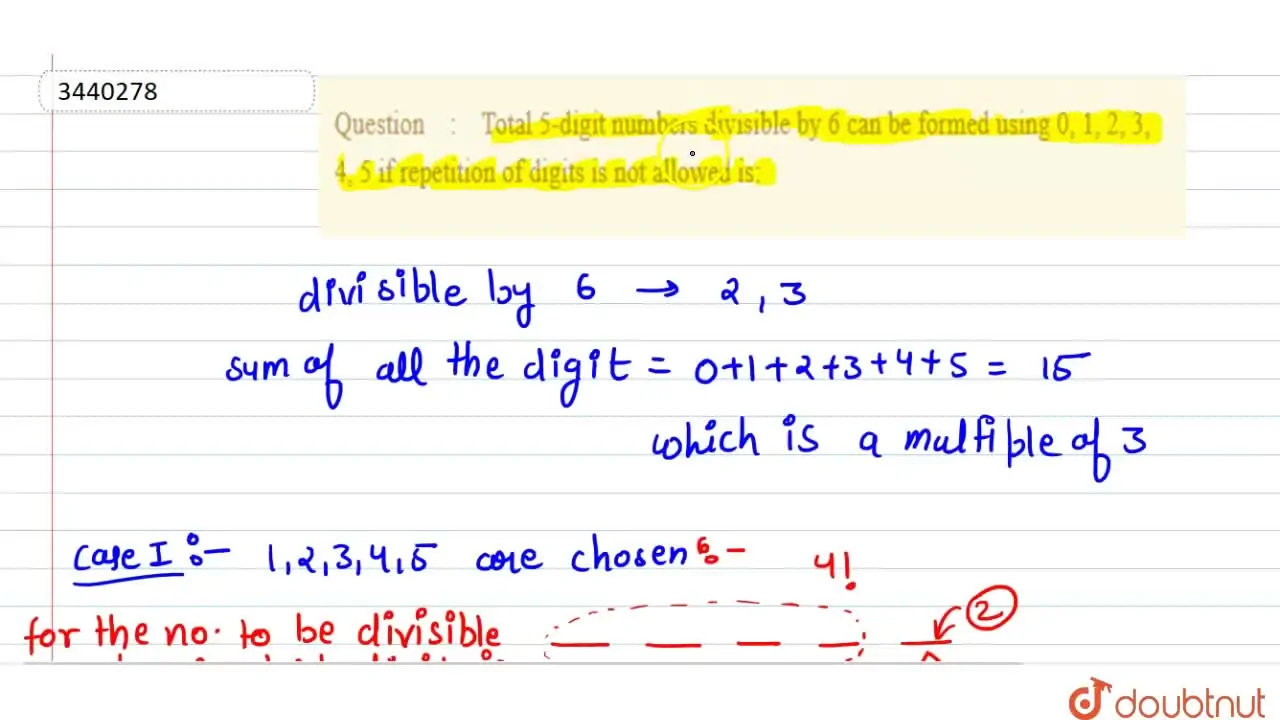 3440278
Question : Total 5-digit numbers divisible by 6 can be formed using 0, 1, 2, 3,
4, 5 if repetition of digits is not allowed is:
divisible by 6 → 2, 3
sum of all the digit = 0+1+2+3+4+5 = 15
which is a multiple of 3
Case I :- 1,2,3,4,5 are chosen :- 4!
for the no. to be divisible
2
doubtnut